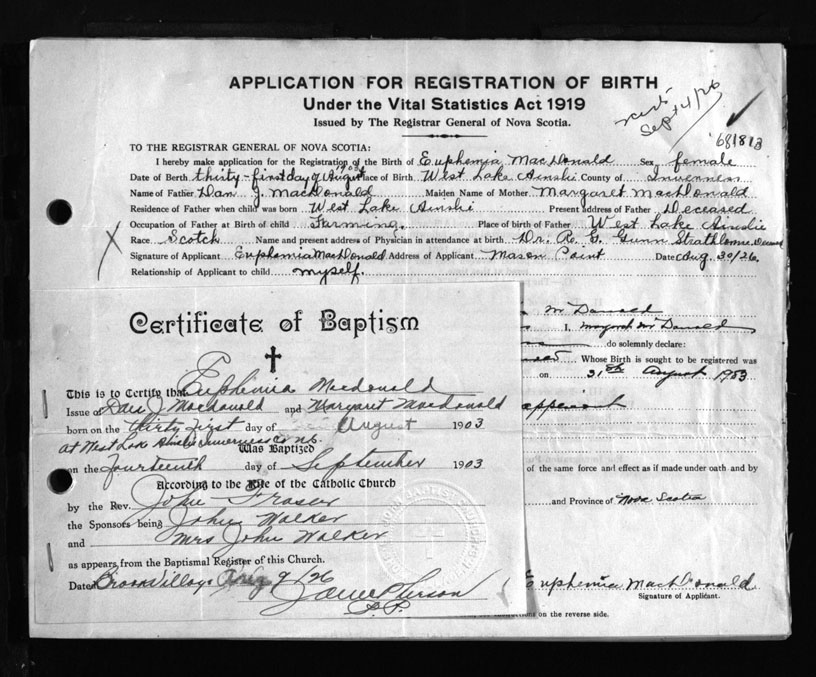 APPLICATION FOR REGISTRATION OF BIRTH
Under the Vital Statistics Act 1919
Issued by The Registrar General of Nova Scotia.
Sept 4/26
681813
TO THE REGISTRAR GENERAL OF NOVA SCOTIA:
I hereby make application for the Registration of the Birth of Euphemia MacDonald Sex female
Date of Birth thirty-first day of August 1903 Place of Birth West Lake Ainslie County of Inverness
Name of Father Dan J. MacDonald Maiden Name of Mother Margaret MacDonald
Residence of Father when child was born West Lake Ainslie Present address of Father Deceased
Occupation of Father at Birth of child Farming. Place of birth of Father West Lake Ainslie
Race Scotch Name and present address of Physician in attendance at birth Dr. R. G. Gunn Strathlorne Deceased
Signature of Applicant Euphemia MacDonald Address of Applicant Mason Point Date Aug. 30/26.
Relationship of Applicant to child myself.
Mc Donald
I, Margaret Mc Donald
do solemnly declare:
Whose Birth is sought to be registered was
on 31st August 1903
applicant
of the same force and effect as if made under oath and by
and Province of Nova Scotia
Euphemia MacDonald
Signature of Applicant.
on the reverse side.
Certificate of Baptism
This is to Certify that Euphemia Macdonald
Issue of Dan J Macdonald and Margaret Macdonald
born on the thirty first day of August 1903
at West Lake Ainslie Inverness Co N.S.
Was Baptized
on the fourteenth day of September 1903
According to the Rite of the Catholic Church
by the Rev. John Fraser
the Sponsors being John Walker
and Mrs John Walker
as appears from the Baptismal Register of this Church.
Dated Aug 9/26
P.P.